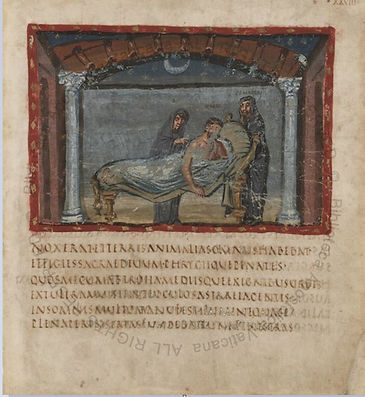 XXVIII
NOXERATETTERRISANIMALIASOMNUSHABEBAT
EFFIGIESSACRAEDIVUMPHRYGIIQUEPENATES
QUOSMECUMABTROIAMEDIISQUEEXIGNIBUSURBIS
EXTULERAM OCULOSASTAREIACENTIS
INSOMNISMULTOMANIFESTILUMINEQUASE
PLENAPERINSERTASFUNDEBATLUNAFENESTRAS
Vaticana ALL RIGHT